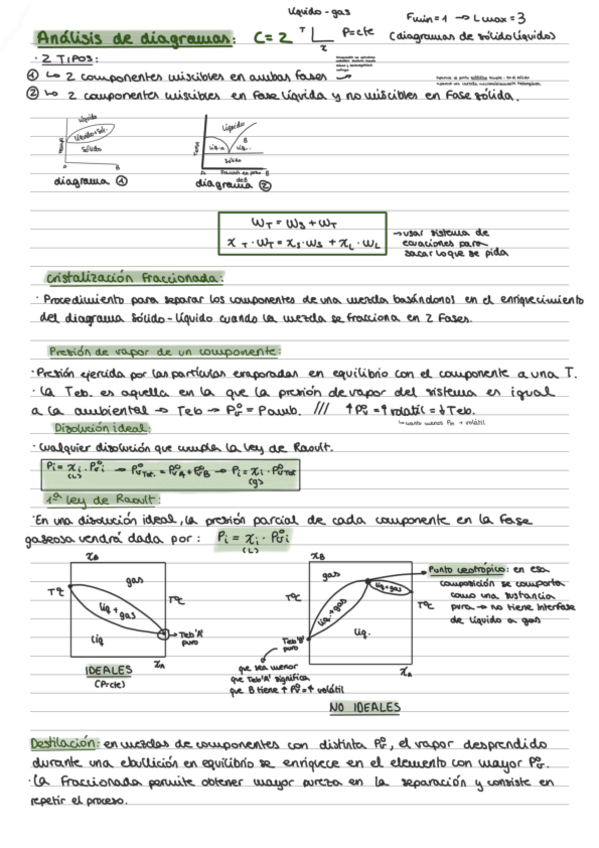 Líquido - gas
Análisis de diagramas: C=2 T x P=cte Fmin=1 → Lmax=3
(diagramas de sólido líquido)
· 2 TIPOS:
① ↳ 2 componentes miscibles en ambas fases
② ↳ 2 componentes miscibles en fase líquida y no miscibles en fase sólida.
Líquido
Líquido+Sol.
Sólido
A B
diagrama ①
Líquido
B
Sólido
diagrama ②
WT = WS + WT
XT · WT = XS · WS + XL · WL
→ usar sistema de
ecuaciones para
sacar lo que se pida
Cristalización fraccionada:
· Procedimiento para separar los componentes de una mezcla basándonos en el enriquecimiento
del diagrama sólido-líquido cuando la mezcla se fracciona en 2 fases.
Presión de vapor de un componente:
· Presión ejercida por las partículas evaporadas en equilibrio con el componente a una T.
· La Teb. es aquella en la que la presión de vapor del sistema es igual
a la ambiental → Teb → Pvº = Pamb. /// ↑Pvº = ↑volátil = ↓Teb.
Disolución ideal:
· Cualquier disolución que cumpla la ley de Raoult.
Pi = xi · Pvºi → PvºTot. = PvºA + PvºB → Pi = xi · PvºTot
(L) (g)
1ª Ley de Raoult:
· En una disolución ideal, la presión parcial de cada componente en la fase
gaseosa vendrá dada por: Pi = xi · Pvºi
(L)
xB
gas
TºC
TºC
Liq + gas
Liq
→ Teb'A'
puro
xA
IDEALES
(Pcte)
xB
gas
TºC
Liq+gas
Liq+gas
TºC
Liq.
Teb'B'
puro
xA
que sea menor
que Teb'A' significa
que B tiene ↑Pvº = ↑volátil
NO IDEALES
Punto azeotrópico: en esa
composición se comporta
como una sustancia
pura → no tiene interfase
de líquido a gas
Destilación: en mezclas de componentes con distinta Pvº, el vapor desprendido
durante una ebullición en equilibrio se enriquece en el elemento con mayor Pvº.
· La fraccionada permite obtener mayor pureza en la separación y consiste en
repetir el proceso.